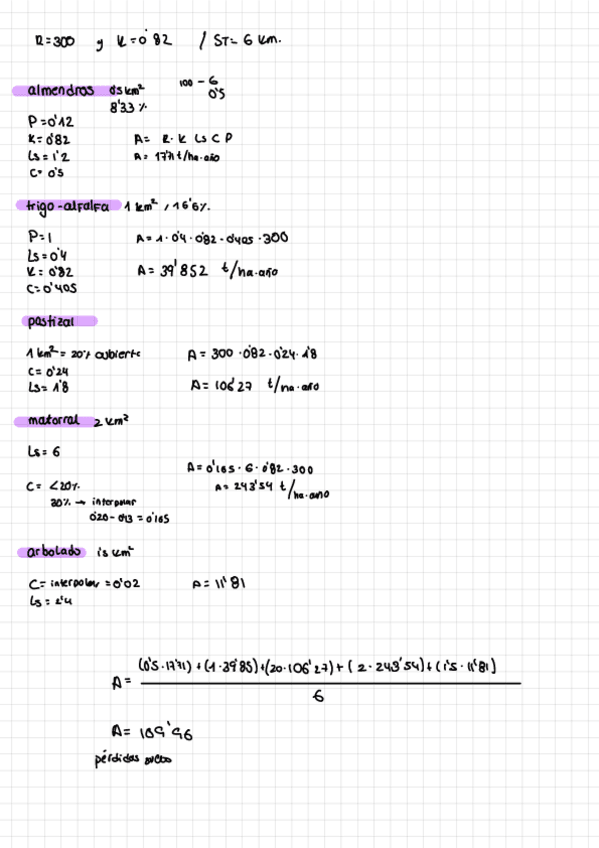 R=300 y K=0'82 / ST= 6 km.
almendros 0'5 km² 100 - 6
8'33 % 0'5
P=0'12
K=0'82 A= R·K LS C P
LS=1'2 A= 17'71 t/ha·año
C=0'5
trigo-alfalfa 1 km², 16'6%.
P=1 A=1·0'4·0'82·0'405·300
LS=0'4
K=0'82 A=39'852 t/ha·año
C=0'405
pastizal
1 km² = 20% cubierto A=300·0'82·0'24·1'8
C=0'24
LS=1'8 A=106'27 t/ha·año
matorral 2 km²
LS=6
A=0'165·6·0'82·300
C= <20%. A=243'54 t/ha·año
30% → interpolar
0'20-0'13=0'165
arbolado 1'5 km²
C=interpolar=0'02 A=11'81
LS=2'4
A= (0'5·17'71)+(1·39'85)+(20·106'27)+(2·243'54)+(1'5·11'81)
6
A=109'96
pérdidas suelo